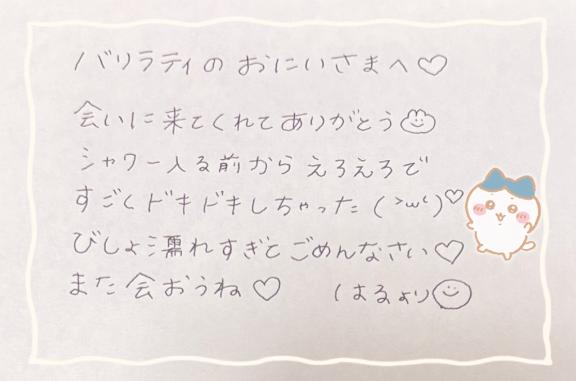 バリラティのおにいさまへ♡
会いに来てくれてありがとう
シャワー入る前からえろえろで
すごくドキドキしちゃった(˃ω˂)♡
びしょ濡れすぎとごめんなさい♡
また会おうね♡ はるより